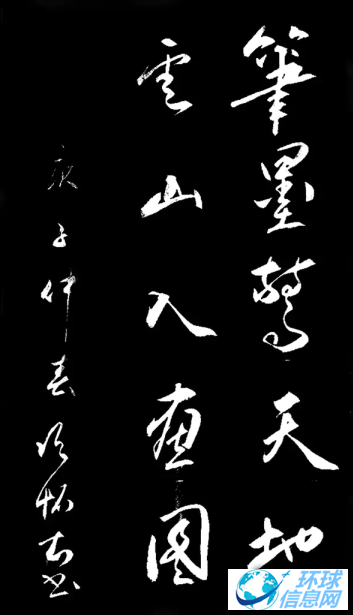 筆墨驚天地
雲山入畫圖
庚子仲春 怀 书
环球
信息网